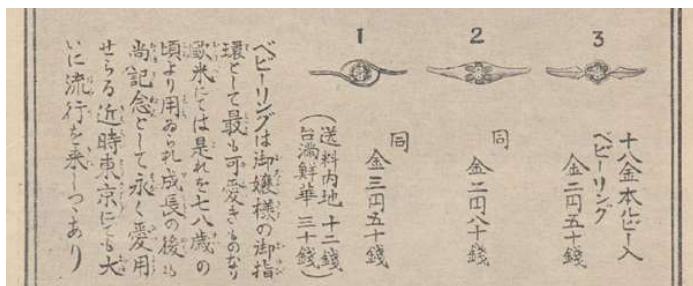 3
十八金本ルビー入
ベビーリング
金二円五十錢
2
同
金二円八十錢
1
同
金三円五十錢
(送料内地 十二錢
台満鮮華 三十錢)
ベビーリングは御嬢様の御指
環として最も可愛きものなり
歐米にては是れを七八歳の
頃より用ゐられ成長の後も
尚記念として永く愛用
せらる近時東京にても大
いに流行を来しつゝあり